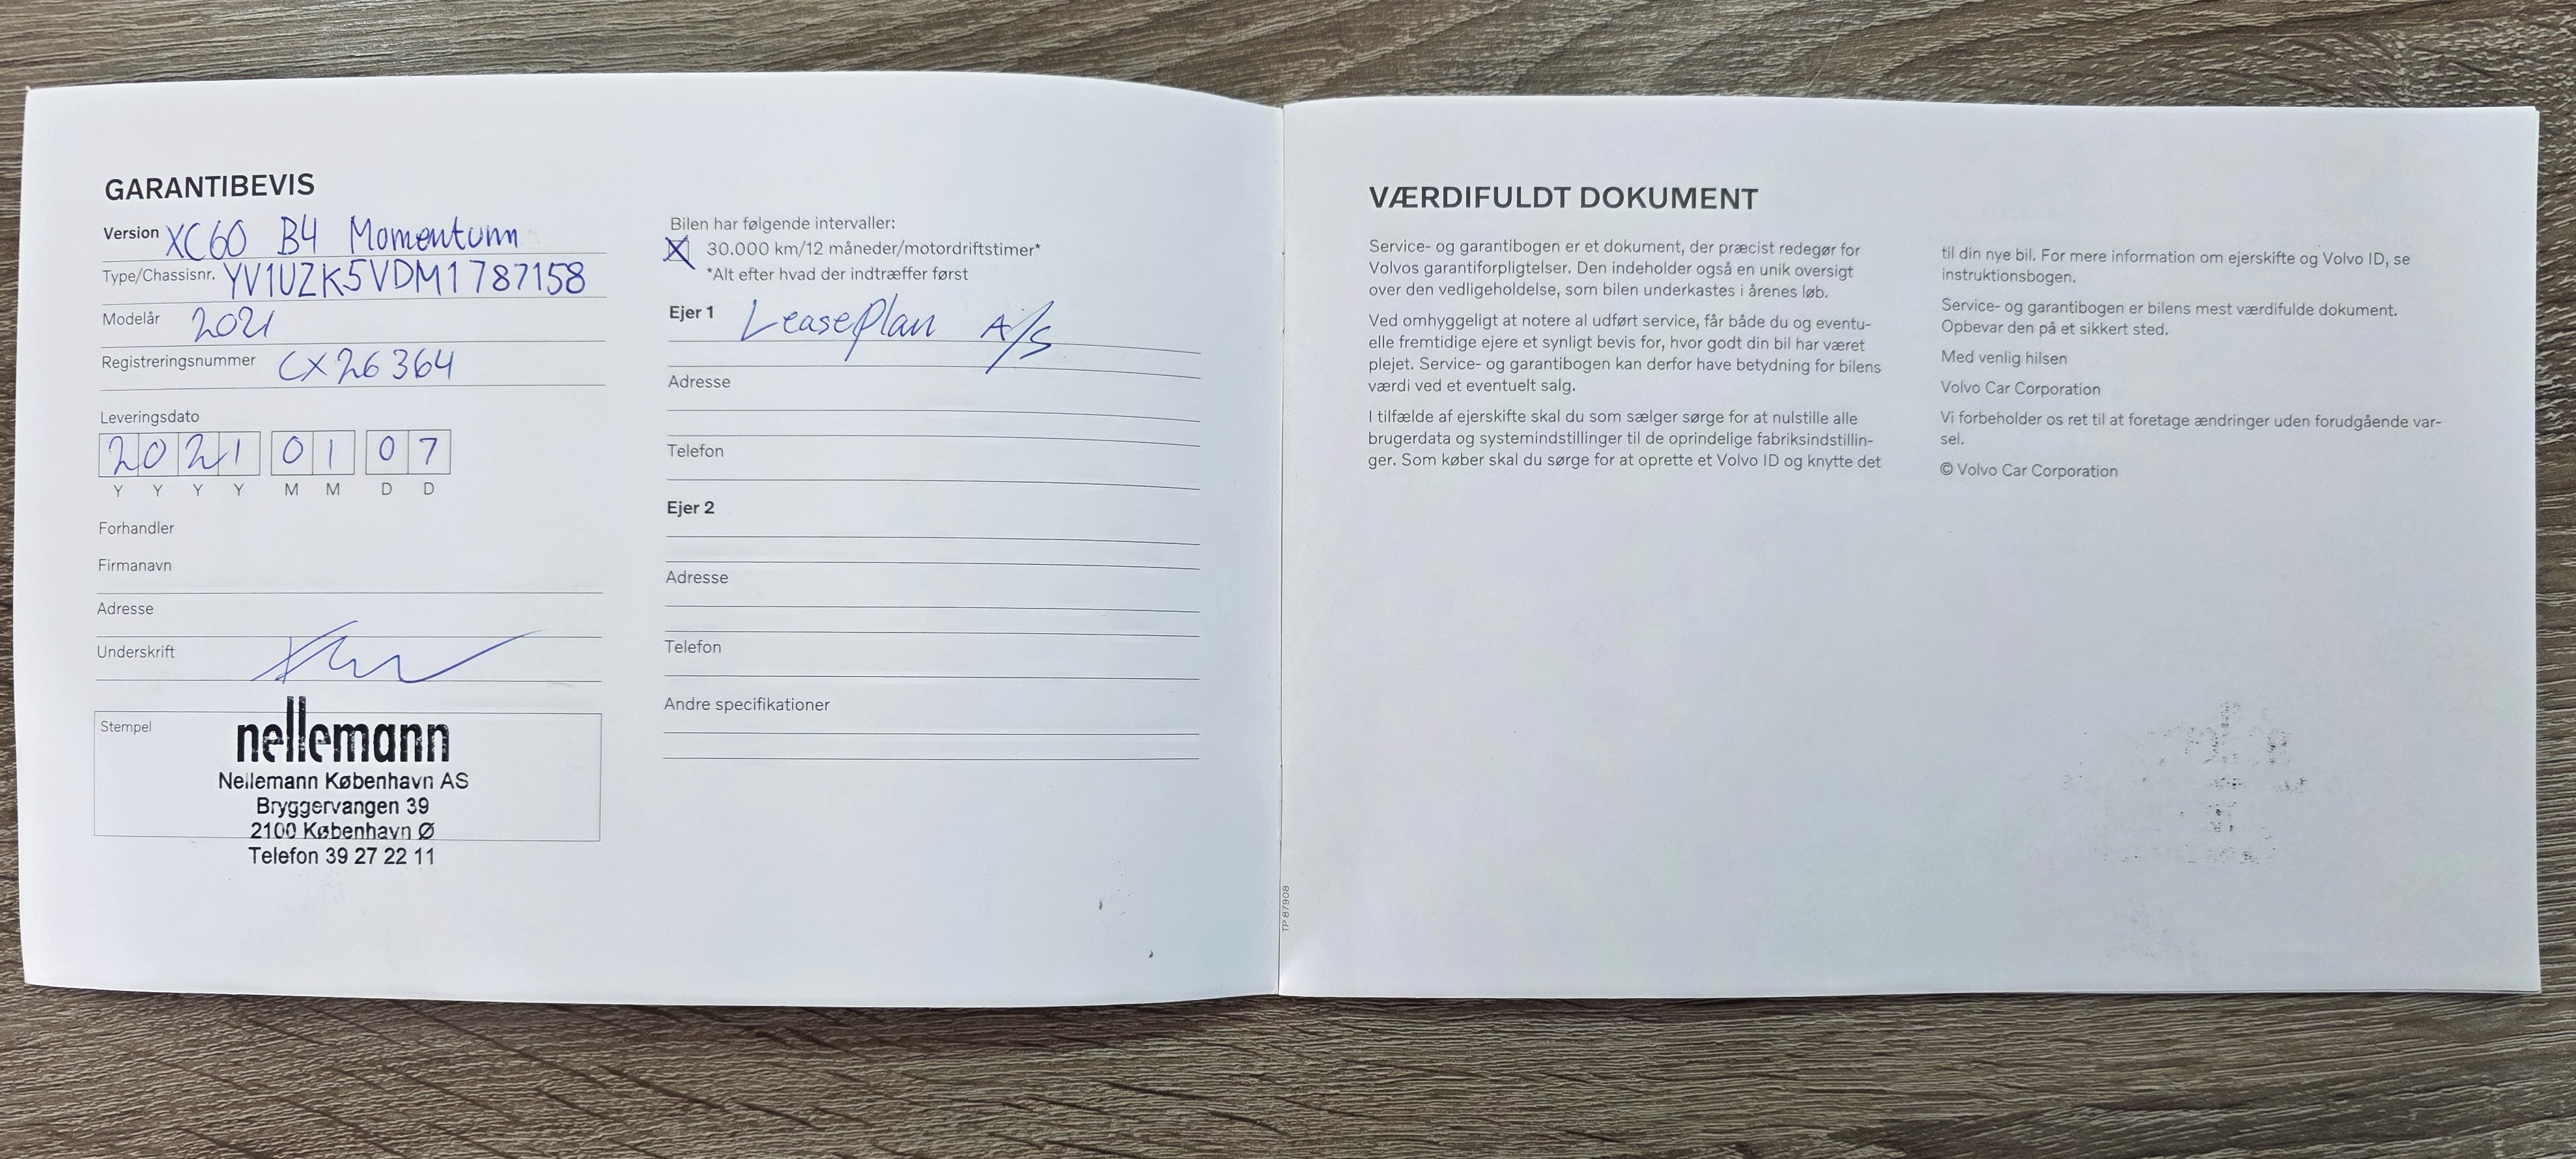 GARANTIBEVIS
Version XC60 B4 Momentum
Type/Chassisnr. YV1UZK5VDM1787158
Modelår 2021
Registreringsnummer CX26364
Leveringsdato
2021 01 07
Y Y Y Y M M D D
Forhandler
Firmanavn
Adresse
Underskrift
Stempel
nellemann
Nellemann København AS
Bryggervangen 39
2100 København Ø
Telefon 39 27 22 11
Bilen har følgende intervaller:
X 30.000 km/12 måneder/motordriftstimer*
*Alt efter hvad der indtræffer først
Ejer 1 LeasePlan A/S
Adresse
Telefon
Ejer 2
Adresse
Telefon
Andre specifikationer
TP 87908
VÆRDIFULDT DOKUMENT
Service- og garantibogen er et dokument, der præcist redegør for
Volvos garantiforpligtelser. Den indeholder også en unik oversigt
over den vedligeholdelse, som bilen underkastes i årenes løb.
Ved omhyggeligt at notere al udført service, får både du og eventu-
elle fremtidige ejere et synligt bevis for, hvor godt din bil har været
plejet. Service- og garantibogen kan derfor have betydning for bilens
værdi ved et eventuelt salg.
I tilfælde af ejerskifte skal du som sælger sørge for at nulstille alle
brugerdata og systemindstillinger til de oprindelige fabriksindstillin-
ger. Som køber skal du sørge for at oprette et Volvo ID og knytte det
til din nye bil. For mere information om ejerskifte og Volvo ID, se
instruktionsbogen.
Service- og garantibogen er bilens mest værdifulde dokument.
Opbevar den på et sikkert sted.
Med venlig hilsen
Volvo Car Corporation
Vi forbeholder os ret til at foretage ændringer uden forudgående var-
sel.
© Volvo Car Corporation